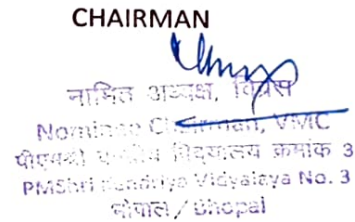 CHAIRMAN
नामित अध्यक्ष, विप्रस
Nominee Chairman, VMC
पीएमश्री केन्द्रीय विद्यालय क्रमांक 3
PMShri Kendriya Vidyalaya No. 3
भोपाल / Bhopal